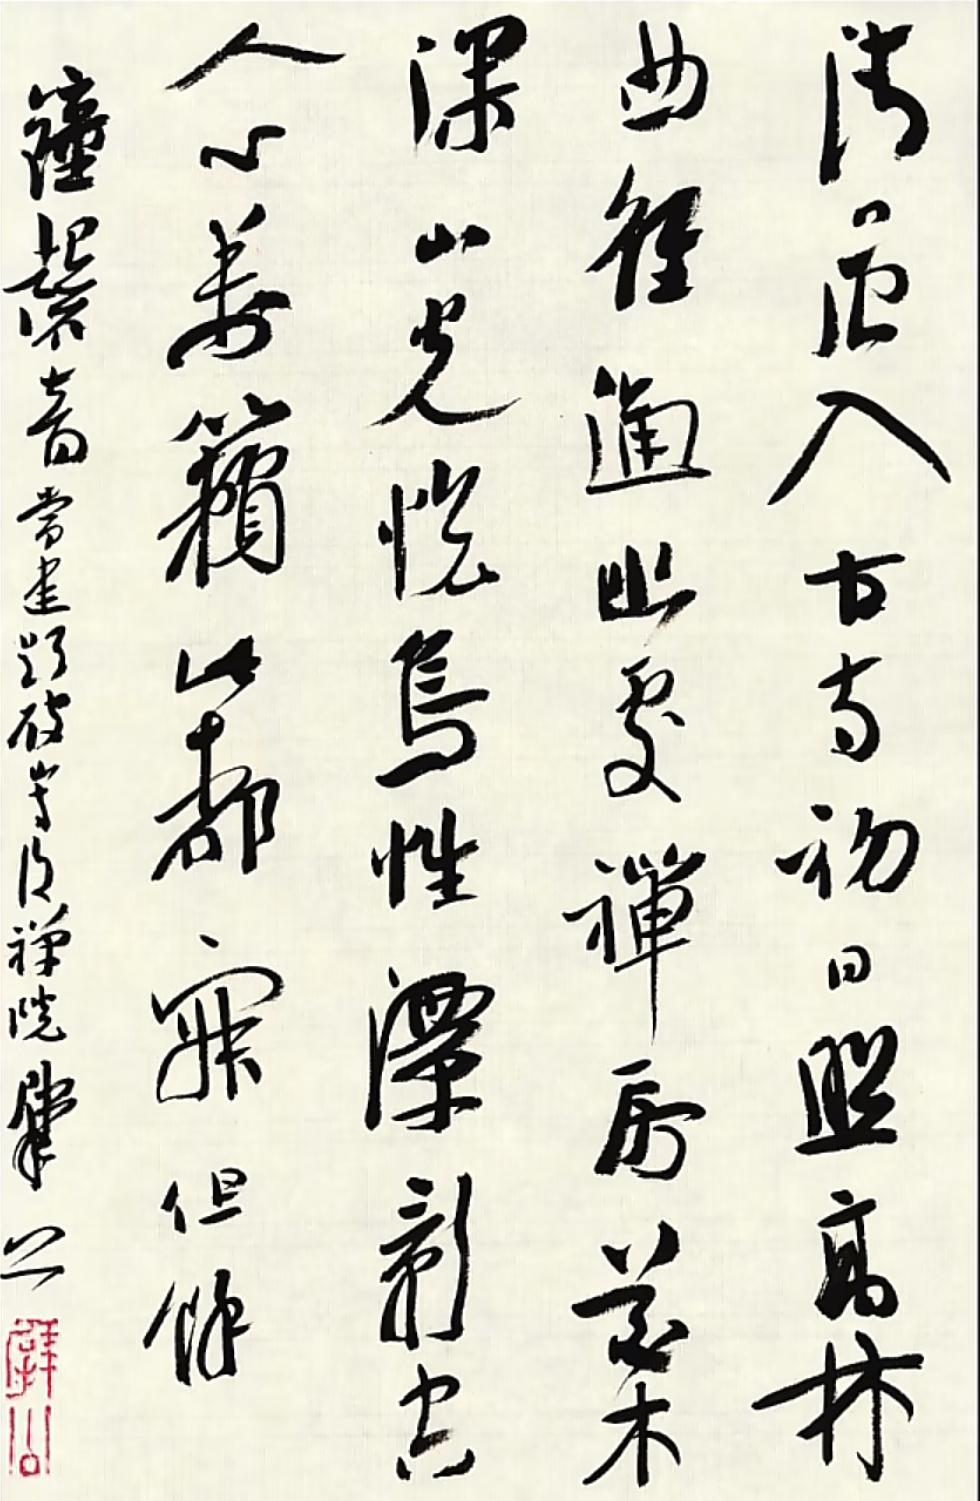 清晨入古寺初日照高林
曲径通幽處禅房花木
深山光悦鳥性潭影空
人心萬籟此都寂但餘
鐘磬音 常建题破山寺后禅院 肄公